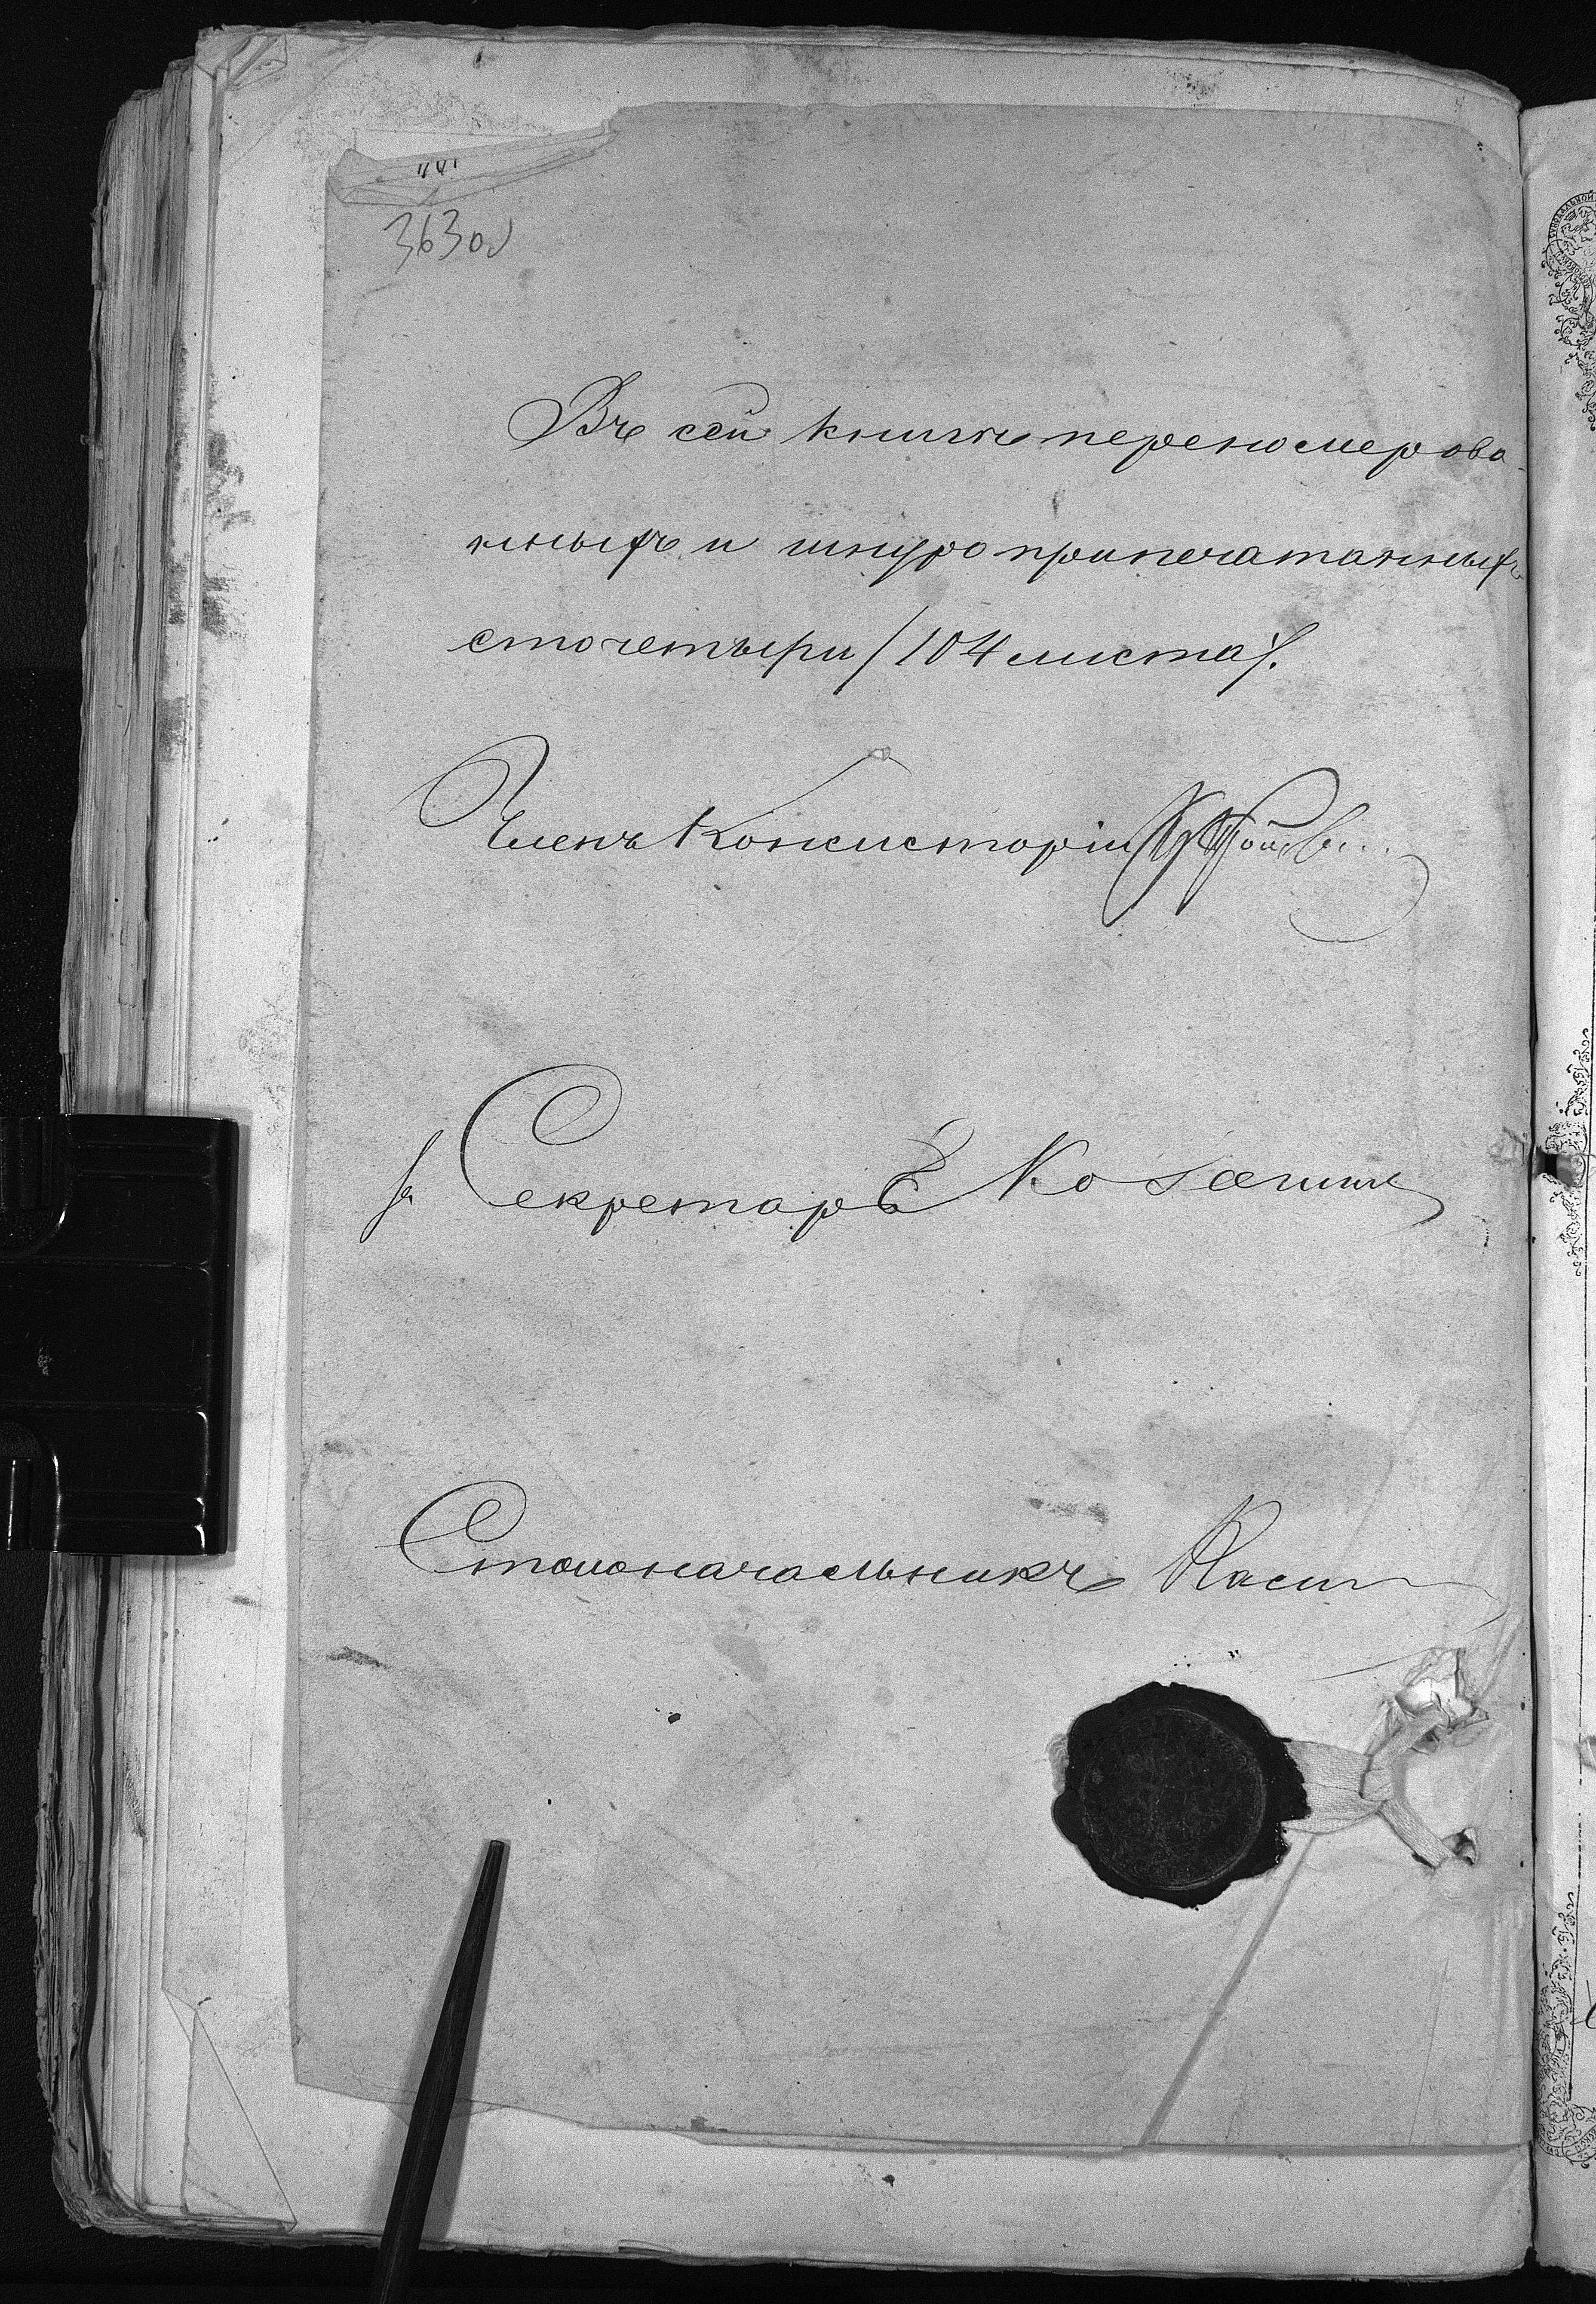 363об
Въ сей книгѣ переномерова-
нныхъ и шнуроприпечатанныхъ
сто четыри /104 листа/.
Членъ Консисторіи
Секретарь
Столоначальникъ